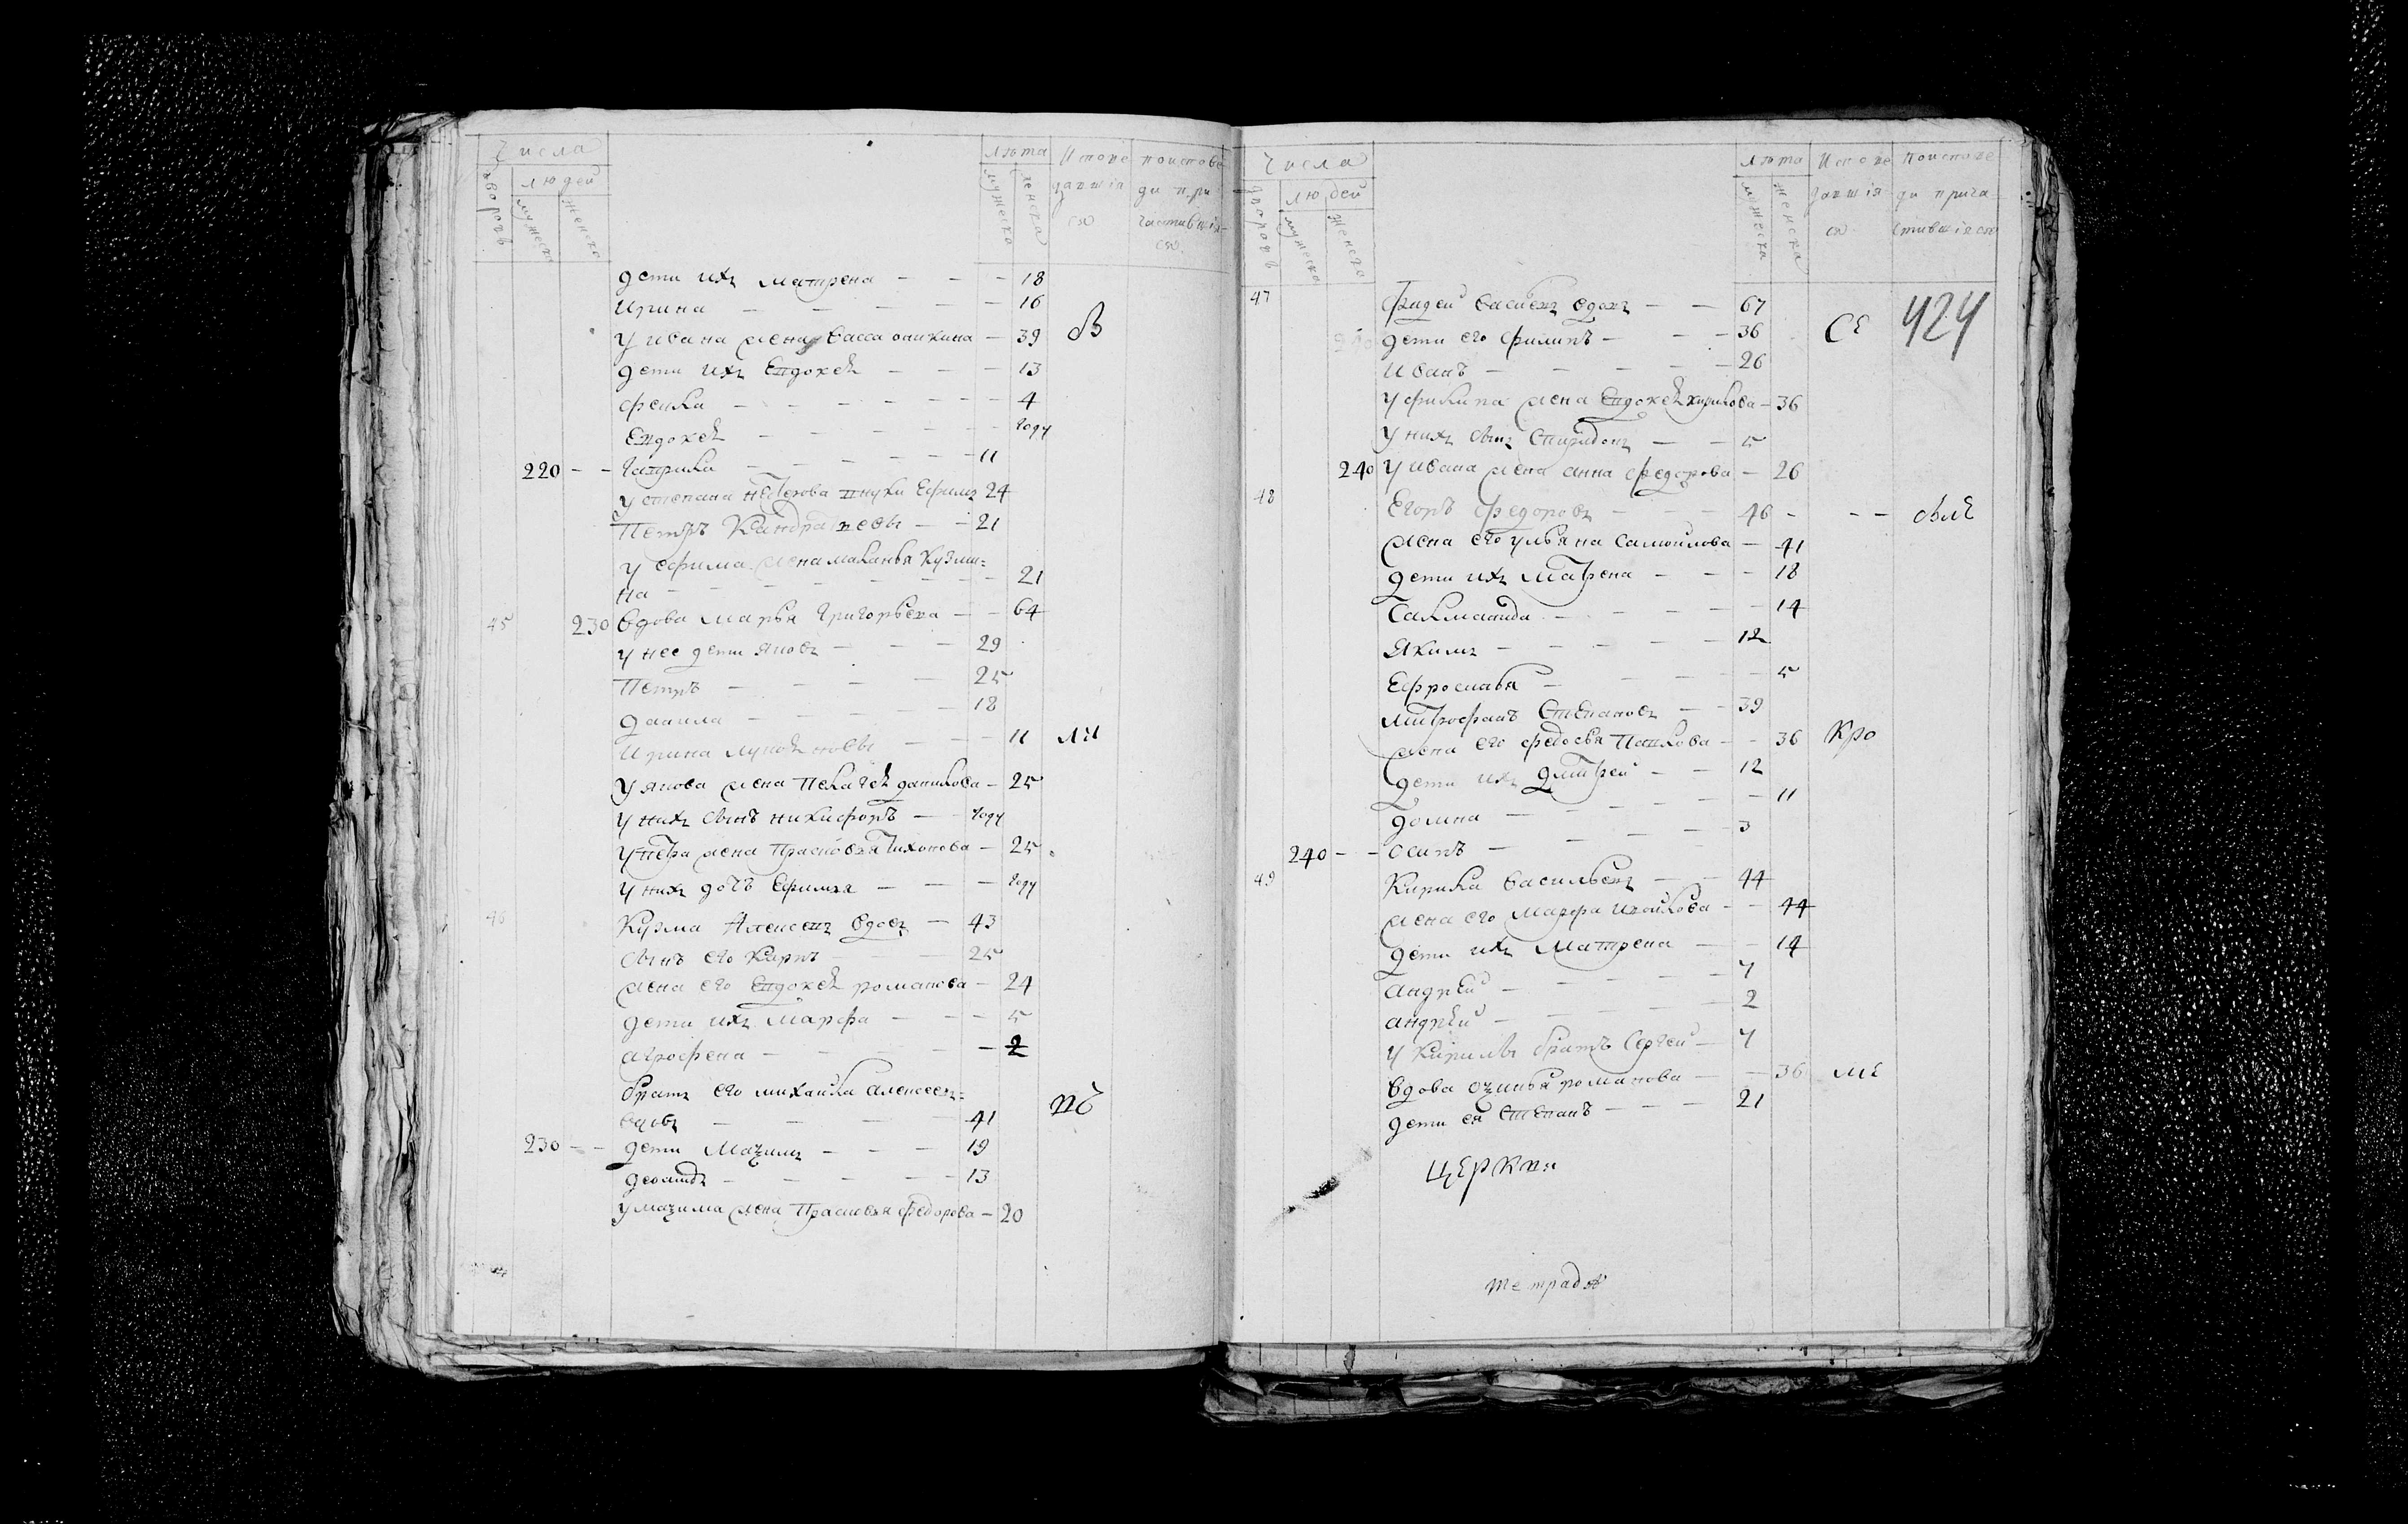 Числа
людей
дворовъ
мужеска
женска
лѣта
мужеска
женска
Испове
давшія
ся
поиспове
ди при
частившія
ся
дети ихъ матрена — 18
Ирина — 16
у ивана жена васса аникина — 39 в
дети ихъ Евдокеѧ — 13
фекла — 4
Евдокеѧ — году
220 — гаврила — 11
у степана нестерова внуки Ефимъ 24
Петръ Кандратьевы — 21
у ефима жена маланья Кузми=
на — 21
45 230 вдова марья григорьева — 64
у нее дети яковъ — 29
Петръ — 25
данила — 18
Ирина — 11 ли
у якова жена Пелагеѧ данилова — 25
у нихъ сынъ никифоръ — году
у петра жена Прасковья Тихонова — 25
у нихъ дочь Ефимья — году
46 Кузма Алексеевъ вдовъ — 43
сынъ его Карпъ — 25
жена его Евдокеѧ романова — 24
дети ихъ марфа — 5
агрофена — 2
братъ его михаила алексеевъ=
вдовъ — 41
230 — дети Маѯимъ — 19
— 13
у маѯима жена Прасковья федорова — 20
Числа
людей
дворовъ
мужеска
женска
лѣта
мужеска
женска
Испове
давшія
ся
поиспове
ди прича
стившіяся
47 фадей васильевъ вдовъ — 67
дети его филипъ — 36 се 424
Иванъ — 26
у филипа жена Евдокеѧ кирилова — 36
у нихъ сынъ Спиридонъ — 5
240 у ивана жена анна федорова — 26
48 Егоръ федоровъ — 46 - -- свле
жена его ульяна самойлова — 41
дети ихъ матрена — 18
— 14
Якимъ — 12
Ефросинья — 5
митрофанъ степановъ — 39
жена его федосья Павлова — 36 кро
дети ихъ дмитрей — 12
домна — 11
240 — осипъ — 3
49 Кирила васильевъ — 44
жена его марфа — 44
дети ихъ матрена — 14
андрей — 7
андрей — 2
у Кирилы братъ Сергей — 7
вдова романова — 36 ме
дети ея степанъ — 21
церкви
тетрадь